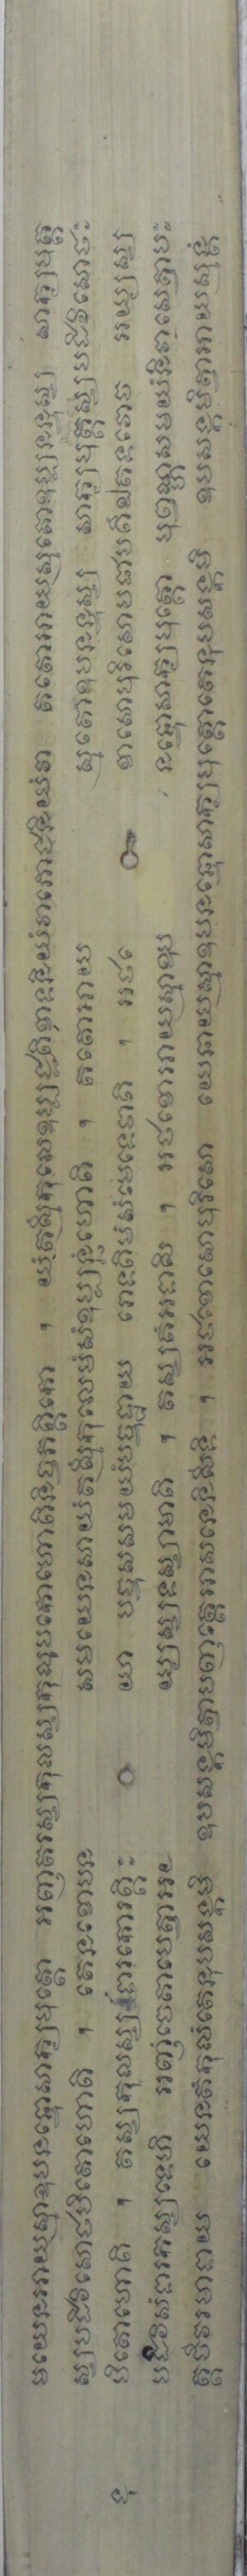 មយេនអាយស្មាឧបនន្ទោសាក្យបុត្តោ អញ្ញតរស្សកុលស្សកុលុបកោហោតិនិច្ចភត្តិកោ ។ យំតស្មឹកុលេឧប្បជ្ជតិខាទនីយំវាភោជនីយំវា តតោអាយស្មតោឧបនន្ទស្ស សាក្យបុត្ត
ស្សបដិវិសោឋបិតោហោតិ ។ តេនខោបន សមយេនសាយំតស្មឹកុលេមំសំឧប្បន្នំហោតិ ។ តតោអាយ ស្មតោឧបនន្ទស្ស សាក្យបុត្តស្សបដិវិសោឋះ
នុ បិតោហោតិ ។ តស្សកុលស្សទារកោរត្តិះ យា បច្ចុសសមយំបច្ចុដ្ឋាយ រោទតិមំសំមេទេថាតិ ។ អថខេ ខាសោបុរិសោបជាបតឹឯតទវោច អយ្យស្ស
បដិវិសំទារកស្សទេហិ អញ្ញំចេតាបេត្វាអយ យ្យស្សទស្សាមាតិ ។ តស្សតំអទាសិ ។ អថខោអាយស្មាឧប នន្ទោសាក្យបុត្តោ បុព្វណ្ហសមយំនិវាសេត្វាបះ
ត្តចីវរមាទាយ យេនតំកុលំតេនុបសង្កមិ ឧបសង្កមិត្វាបញ្ញត្តេអាសនេនិសីទិ ។ អថខោសោបុរិសោ យេនាយស្មាឧបនន្ទោសាក្យបុត្តោតេនុបសង្កមិ ឧបសង្កមិត្វាអាយស្មន្តំ